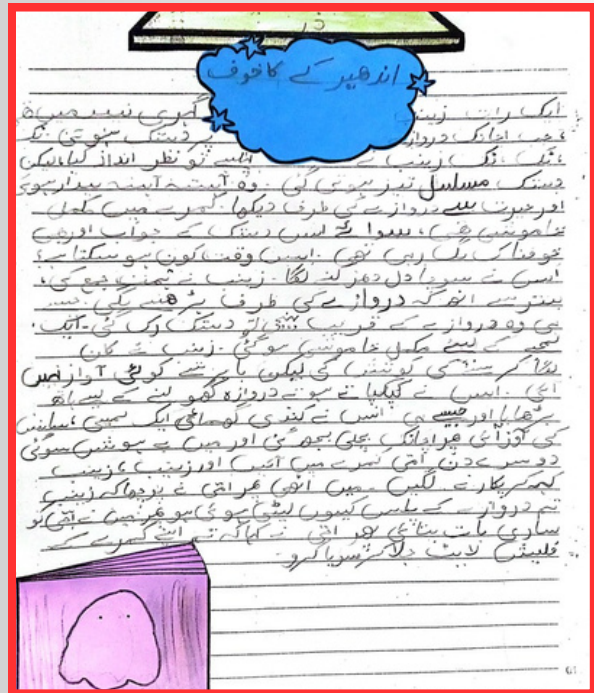 ڈر
اندھیرے کا خوف
ایک رات زینب گہری نیند میں تھی
جب اچانک دروازے دستک ہوئی ٹک
ٹک، ٹک زینب نے پہلے تو نظر انداز کیا، لیکن
دستک مسلسل تیز ہوتی گئی۔ وہ آہستہ آہستہ بیدار ہوئی
اور حیرت سے دروازے کی طرف دیکھا۔ کمرے میں مکمل
خاموشی تھی، سوائے اس دستک کے جو اب اور بھی
خوفناک لگ رہی تھی۔ اس وقت کون ہو سکتا ہے؟
اس نے سوچا دل دھڑکنے لگا زینب نے ہمت جمع کی،
بستر سے اٹھ کر دروازے کی طرف بڑھنے لگی۔ جیسے
ہی وہ دروازے کے قریب پہنچی تو دستک رک گئی۔ ایک
لمحے کے لیے مکمل خاموشی ہو گئی۔ زینب نے کان
لگا کر سننے کی کوشش کی لیکن باہر سے کوئی آواز نہیں
آئی۔ اس نے کپکپاتے ہوئے دروازہ کھولنے کے لیے ہاتھ
بڑھایا اور جیسے ہی اس نے کنڈی گھمائی ایک
کی آواز آئی پھر اچانک بجلی بجھ گئی اور میں بے ہوش ہو گئی
دوسرے دن امی کمرے میں آئیں اور زینب، زینب
کہہ کر پکارنے لگیں۔ میں اٹھی پھر امی نے پوچھا کہ زینب
تم دروازے کے پاس کیوں لیٹی ہوئی ہو پھر میں نے امی کو
ساری بات بتائی پھر امی نے کہا کہ تم اپنے کمرے کے
لائٹ جلا کر سویا کرو۔